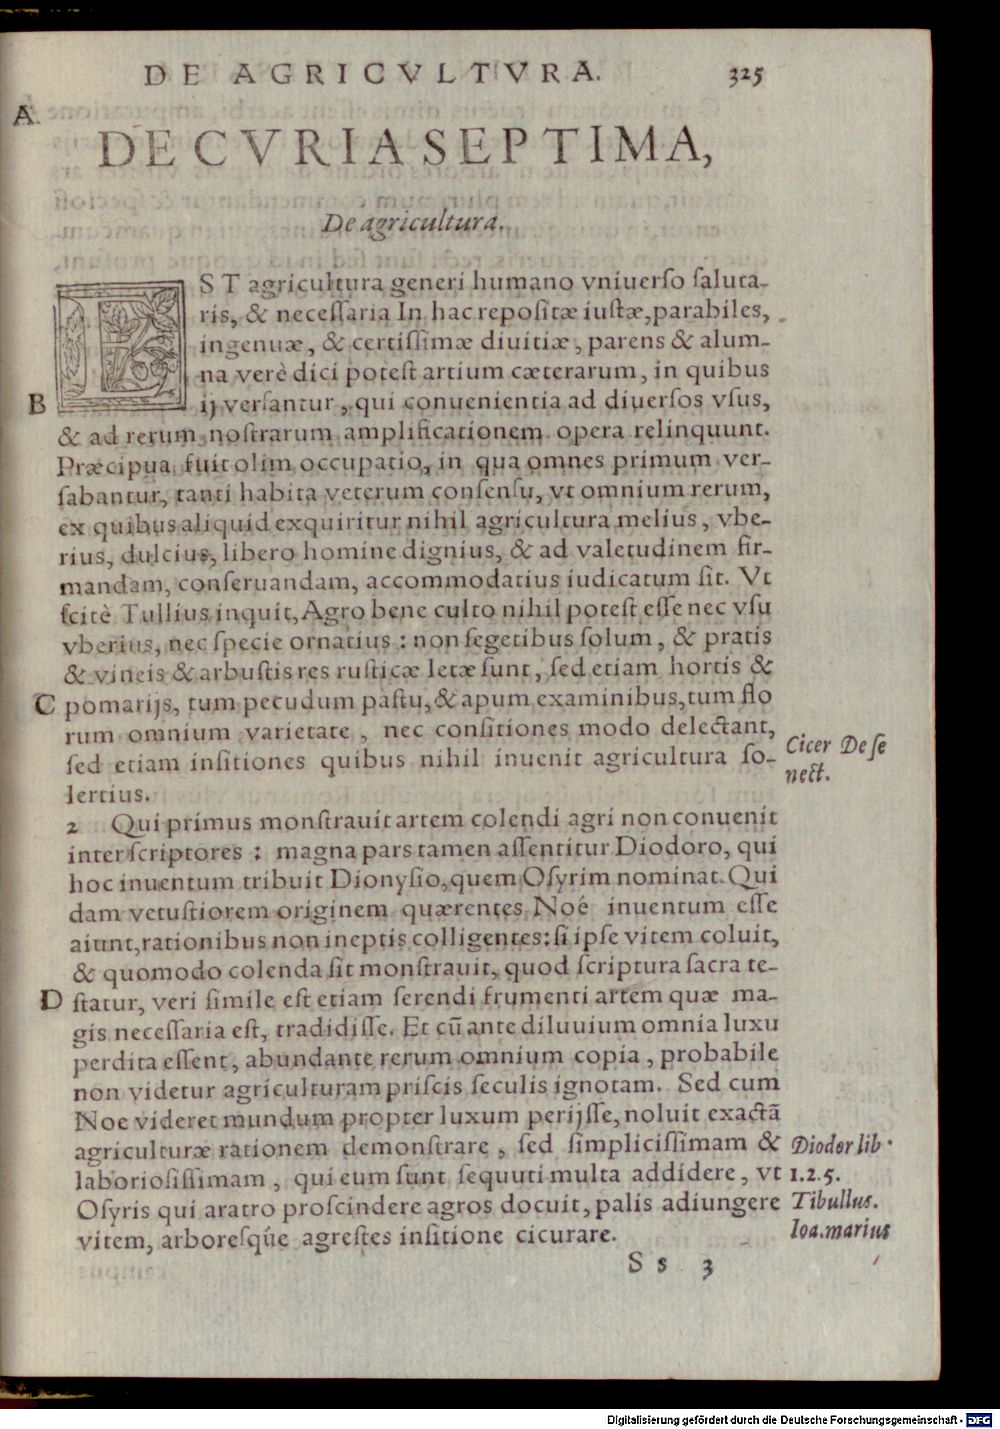 DE AGRICVLTVRA. 325
A.
DECVRIA SEPTIMA,
De agricultura.
EST agricultura generi humano vniuerso saluta-
ris, & necessaria In hac repositæ iustæ, parabiles,
ingenuæ, & certissimæ diuitiæ, parens & alum-
na verè dici potest artium cæterarum, in quibus
B ij versantur, qui conuenientia ad diuersos vsus,
& ad rerum nostrarum amplificationem opera relinquunt.
Præcipua fuit olim occupatio, in qua omnes primum ver-
sabantur, tanti habita veterum consensu, vt omnium rerum,
ex quibus aliquid exquiritur nihil agricultura melius, vbe-
rius, dulcius, libero homine dignius, & ad valetudinem fir-
mandam, conseruandam, accommodatius iudicatum sit. Vt
scitè Tullius inquit, Agro bene culto nihil potest esse nec vsu
vberius, nec specie ornatius : non segetibus solum, & pratis
& vineis & arbustis res rusticæ letæ sunt, sed etiam hortis &
C pomarijs, tum pecudum pastu, & apum examinibus, tum flo
rum omnium varietate, nec consitiones modo delectant,
sed etiam insitiones quibus nihil inuenit agricultura so-
lertius.
Cicer De se
nect.
2 Qui primus monstrauit artem colendi agri non conuenit
inter scriptores : magna pars tamen assentitur Diodoro, qui
hoc inuentum tribuit Dionysio, quem Osyrim nominat. Qui
dam vetustiorem originem quærentes Noé inuentum esse
aiunt, rationibus non ineptis colligentes: si ipse vitem coluit,
& quomodo colenda sit monstrauit, quod scriptura sacra te-
D statur, veri simile est etiam serendi frumenti artem quæ ma-
gis necessaria est, tradidisse. Et cũ ante diluuium omnia luxu
perdita essent, abundante rerum omnium copia, probabile
non videtur agriculturam priscis seculis ignotam. Sed cum
Noe videret mundum propter luxum perijsse, noluit exactã
agriculturæ rationem demonstrare, sed simplicissimam &
laboriosissimam, qui eum sunt sequuti multa addidere, vt
Osyris qui aratro proscindere agros docuit, palis adiungere
vitem, arboresq́ue agrestes insitione cicurare.
Diodor lib.
1.2.5.
Tibullus.
Ioa.marius
Ss 3
Digitalisierung gefördert durch die Deutsche Forschungsgemeinschaft - DFG